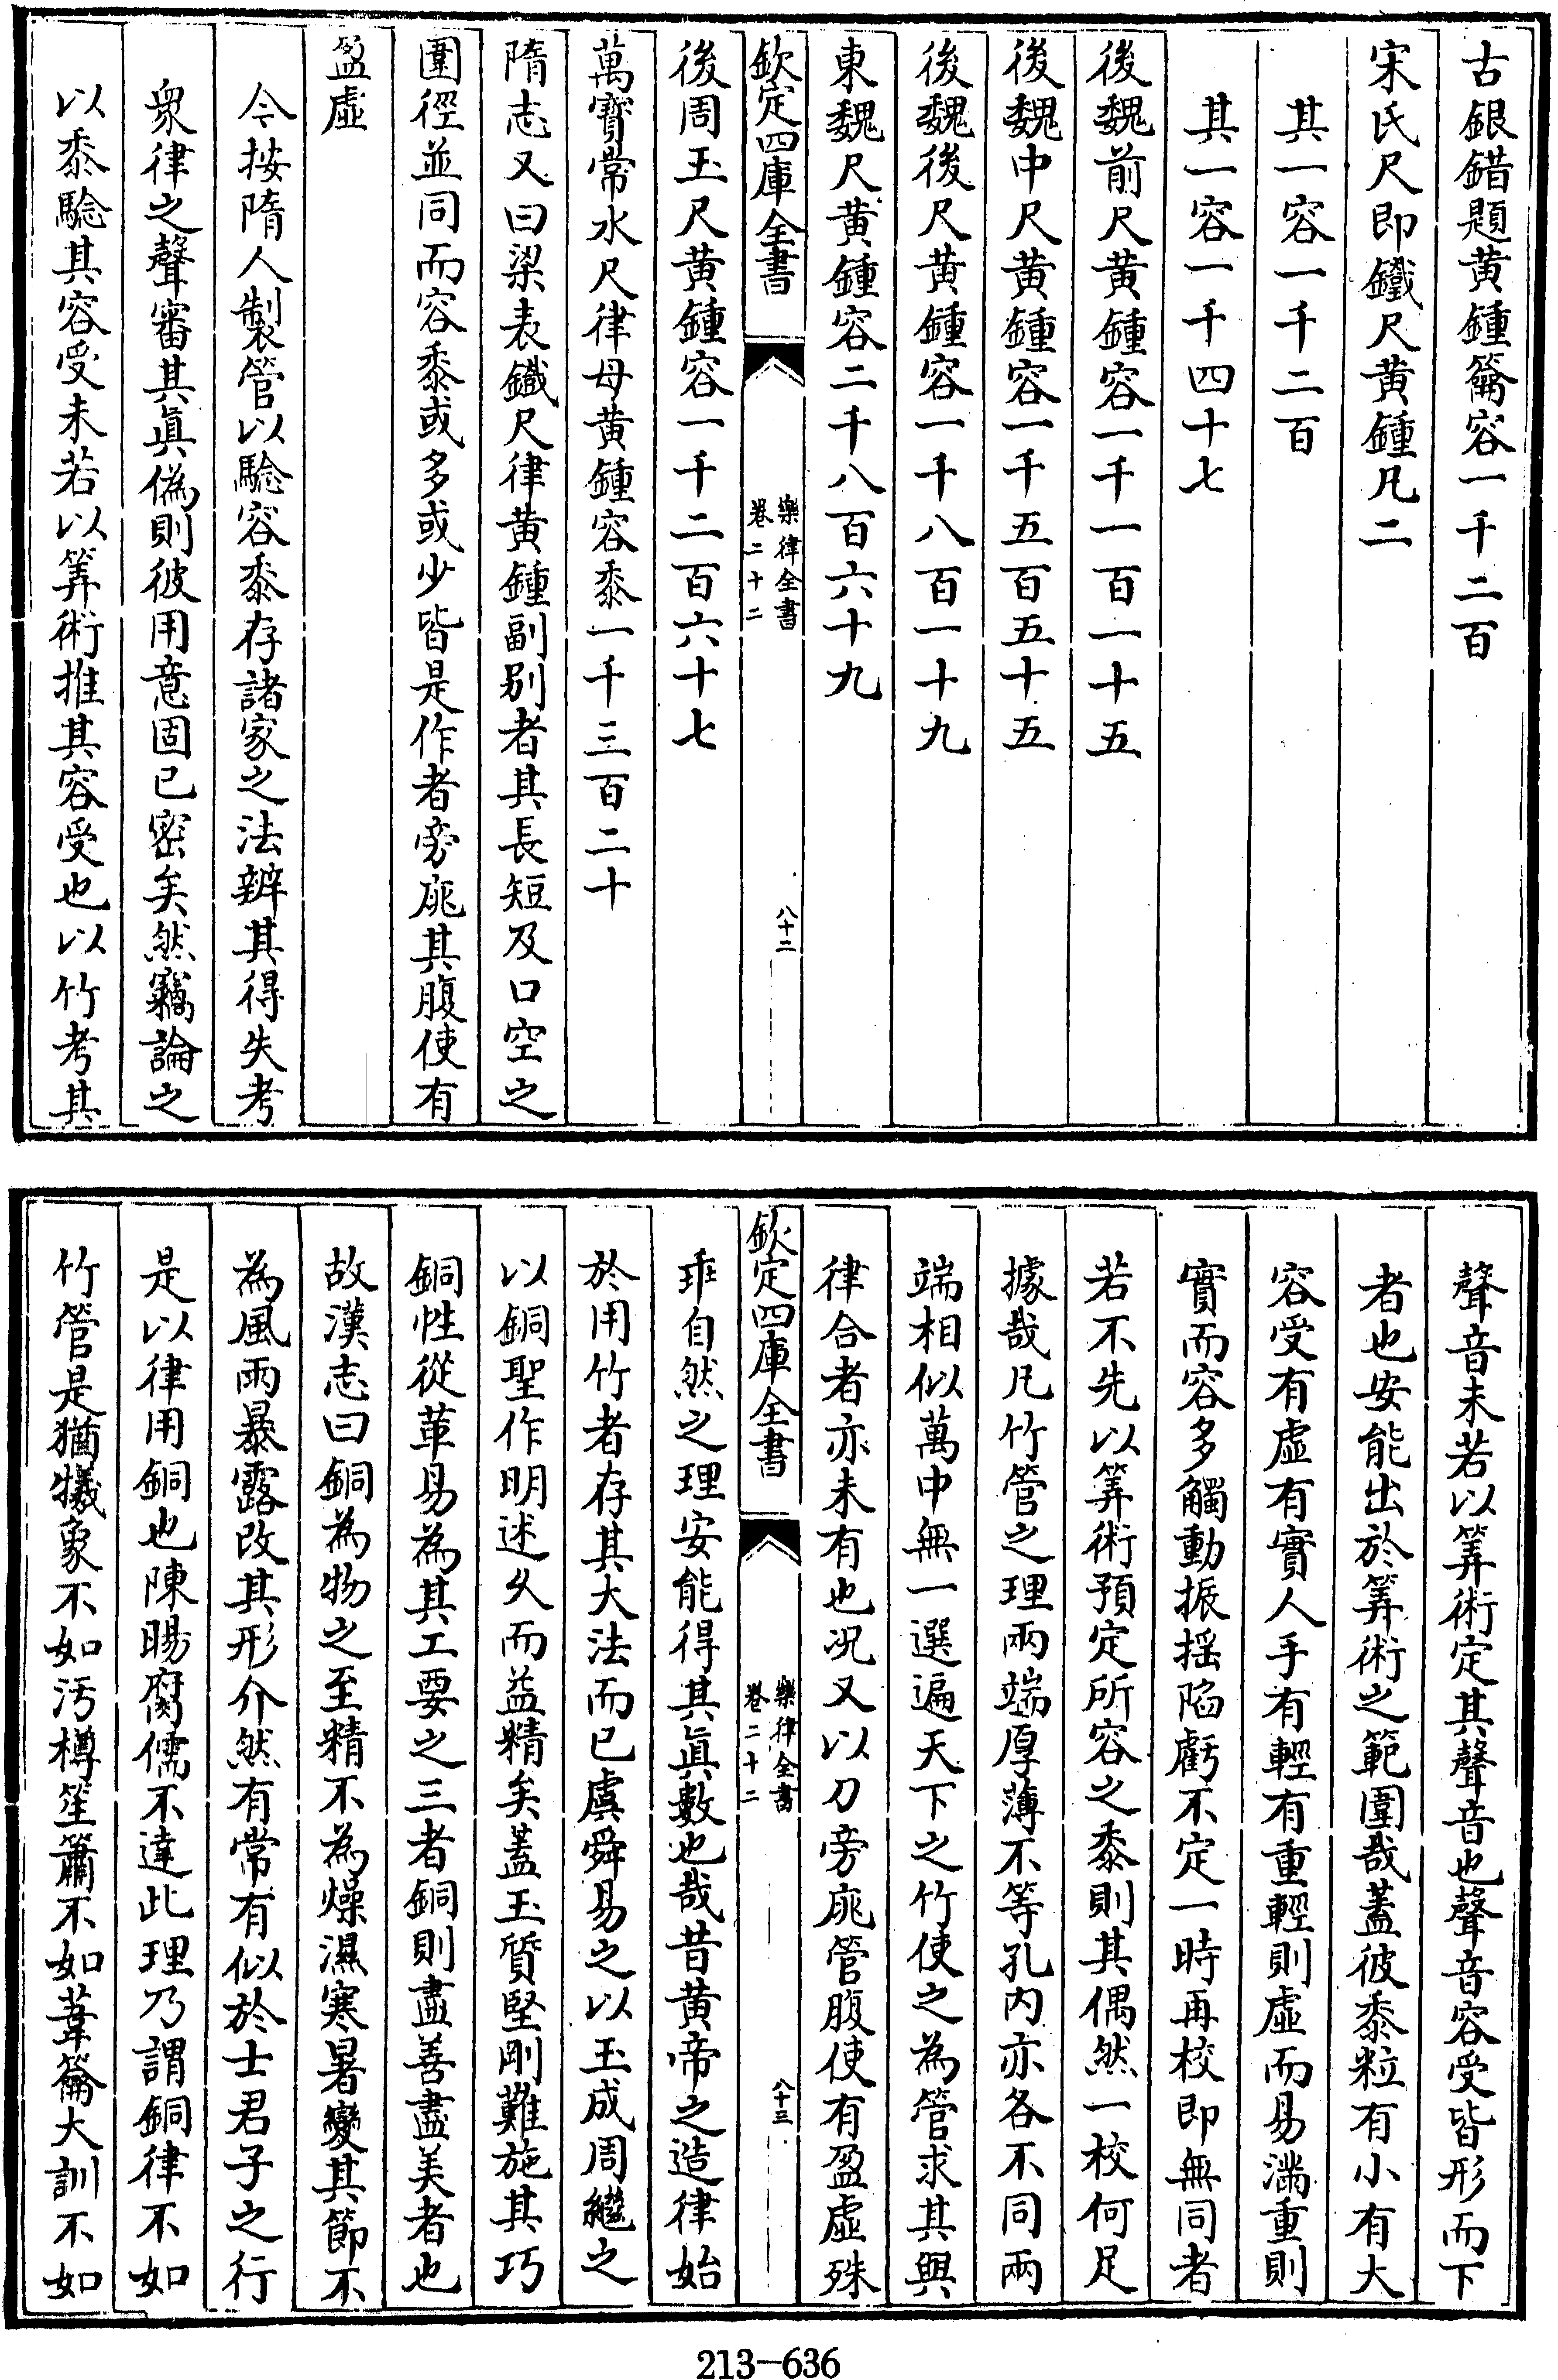 古銀錯題黄鍾籥容一千二百
宋氏尺即鐵尺黄鍾凡二
其一容一千二百
其一容一千四十七
後魏前尺黄鍾容一千一百一十五
後魏中尺黄鍾容一千五百五十五
後魏後尺黄鍾容一千八百一十九
東魏尺黄鍾容二千八百六十九
欽定四庫全書
樂律全書
卷二十二
八十二
後周玉尺黄鍾容一千二百六十七
萬寶常水尺律母黄鍾容黍一千三百二十
隋志又曰梁表鐵尺律黄鍾副别者其長短及口空之
圍徑並同而容黍或多或少皆是作者旁庣其腹使有
盈虛
今按隋人製管以驗容黍存諸家之法辨其得失考
衆律之聲審其眞偽則彼用意固已密矣然竊論之
以黍驗其容受未若以筭術推其容受也以竹考其
聲音未若以筭術定其聲音也聲音容受皆形而下
者也安能出於筭術之範圍哉蓋彼黍粒有小有大
容受有虛有實人手有輕有重輕則虛而易滿重則
實而容多觸動振揺陷虧不定一時再校即無同者
若不先以筭術預定所容之黍則其偶然一校何足
據哉凡竹管之理兩端厚薄不等孔内亦各不同兩
端相似萬中無一選遍天下之竹使之為管求其與
律合者亦未有也况又以刀旁庣管腹使有盈虛殊
欽定四庫全書
樂律全書
卷二十二
八十三
乖自然之理安能得其眞數也哉昔黄帝之造律始
於用竹者存其大法而已虞舜易之以玉成周繼之
以銅聖作明述久而益精矣蓋玉質堅剛難施其巧
銅性從革易為其工要之三者銅則盡善盡美者也
故漢志曰銅為物之至精不為燥濕寒暑變其節不
為風雨暴露改其形介然有常有似於士君子之行
是以律用銅也陳暘腐儒不達此理乃謂銅律不如
竹管是猶犧象不如汚樽笙簫不如葦籥大訓不如
213-636